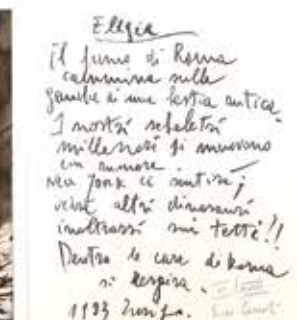 Elegia
il fiume di Roma
cammina sulle
gambe di una bestia antica.
I nostri scheletri
millenari si muovono
con rumore.
New York ci sentirà;
verso altri dinosauri
inoltrarsi sui tetti!!
Dentro le case di Roma
si respira.
1993